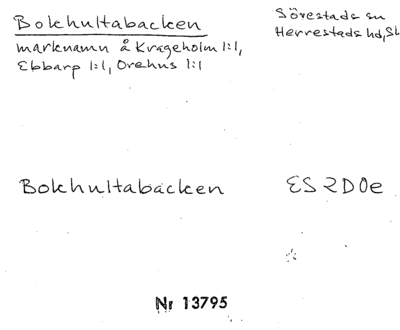 Bokhultabacken
marknamn å Krageholm 1:1,
Ebbarp 1:1, Orehus 1:1
Sörestads sn
Herrestads hd, Sk
Bokhultabacken
ES 2D0e
Nr 13795